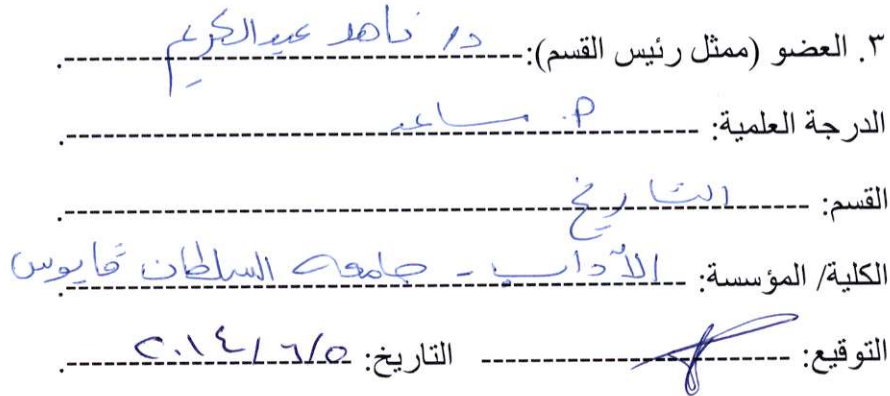 ٣. العضو (ممثل رئيس القسم): د/ ناهد عبدالكريم
الدرجة العلمية: أ. مساعد
القسم: التاريخ
الكلية/ المؤسسة: الآداب - جامعة السلطان قابوس
التوقيع: التاريخ: ٢٠١٤/٦/٥